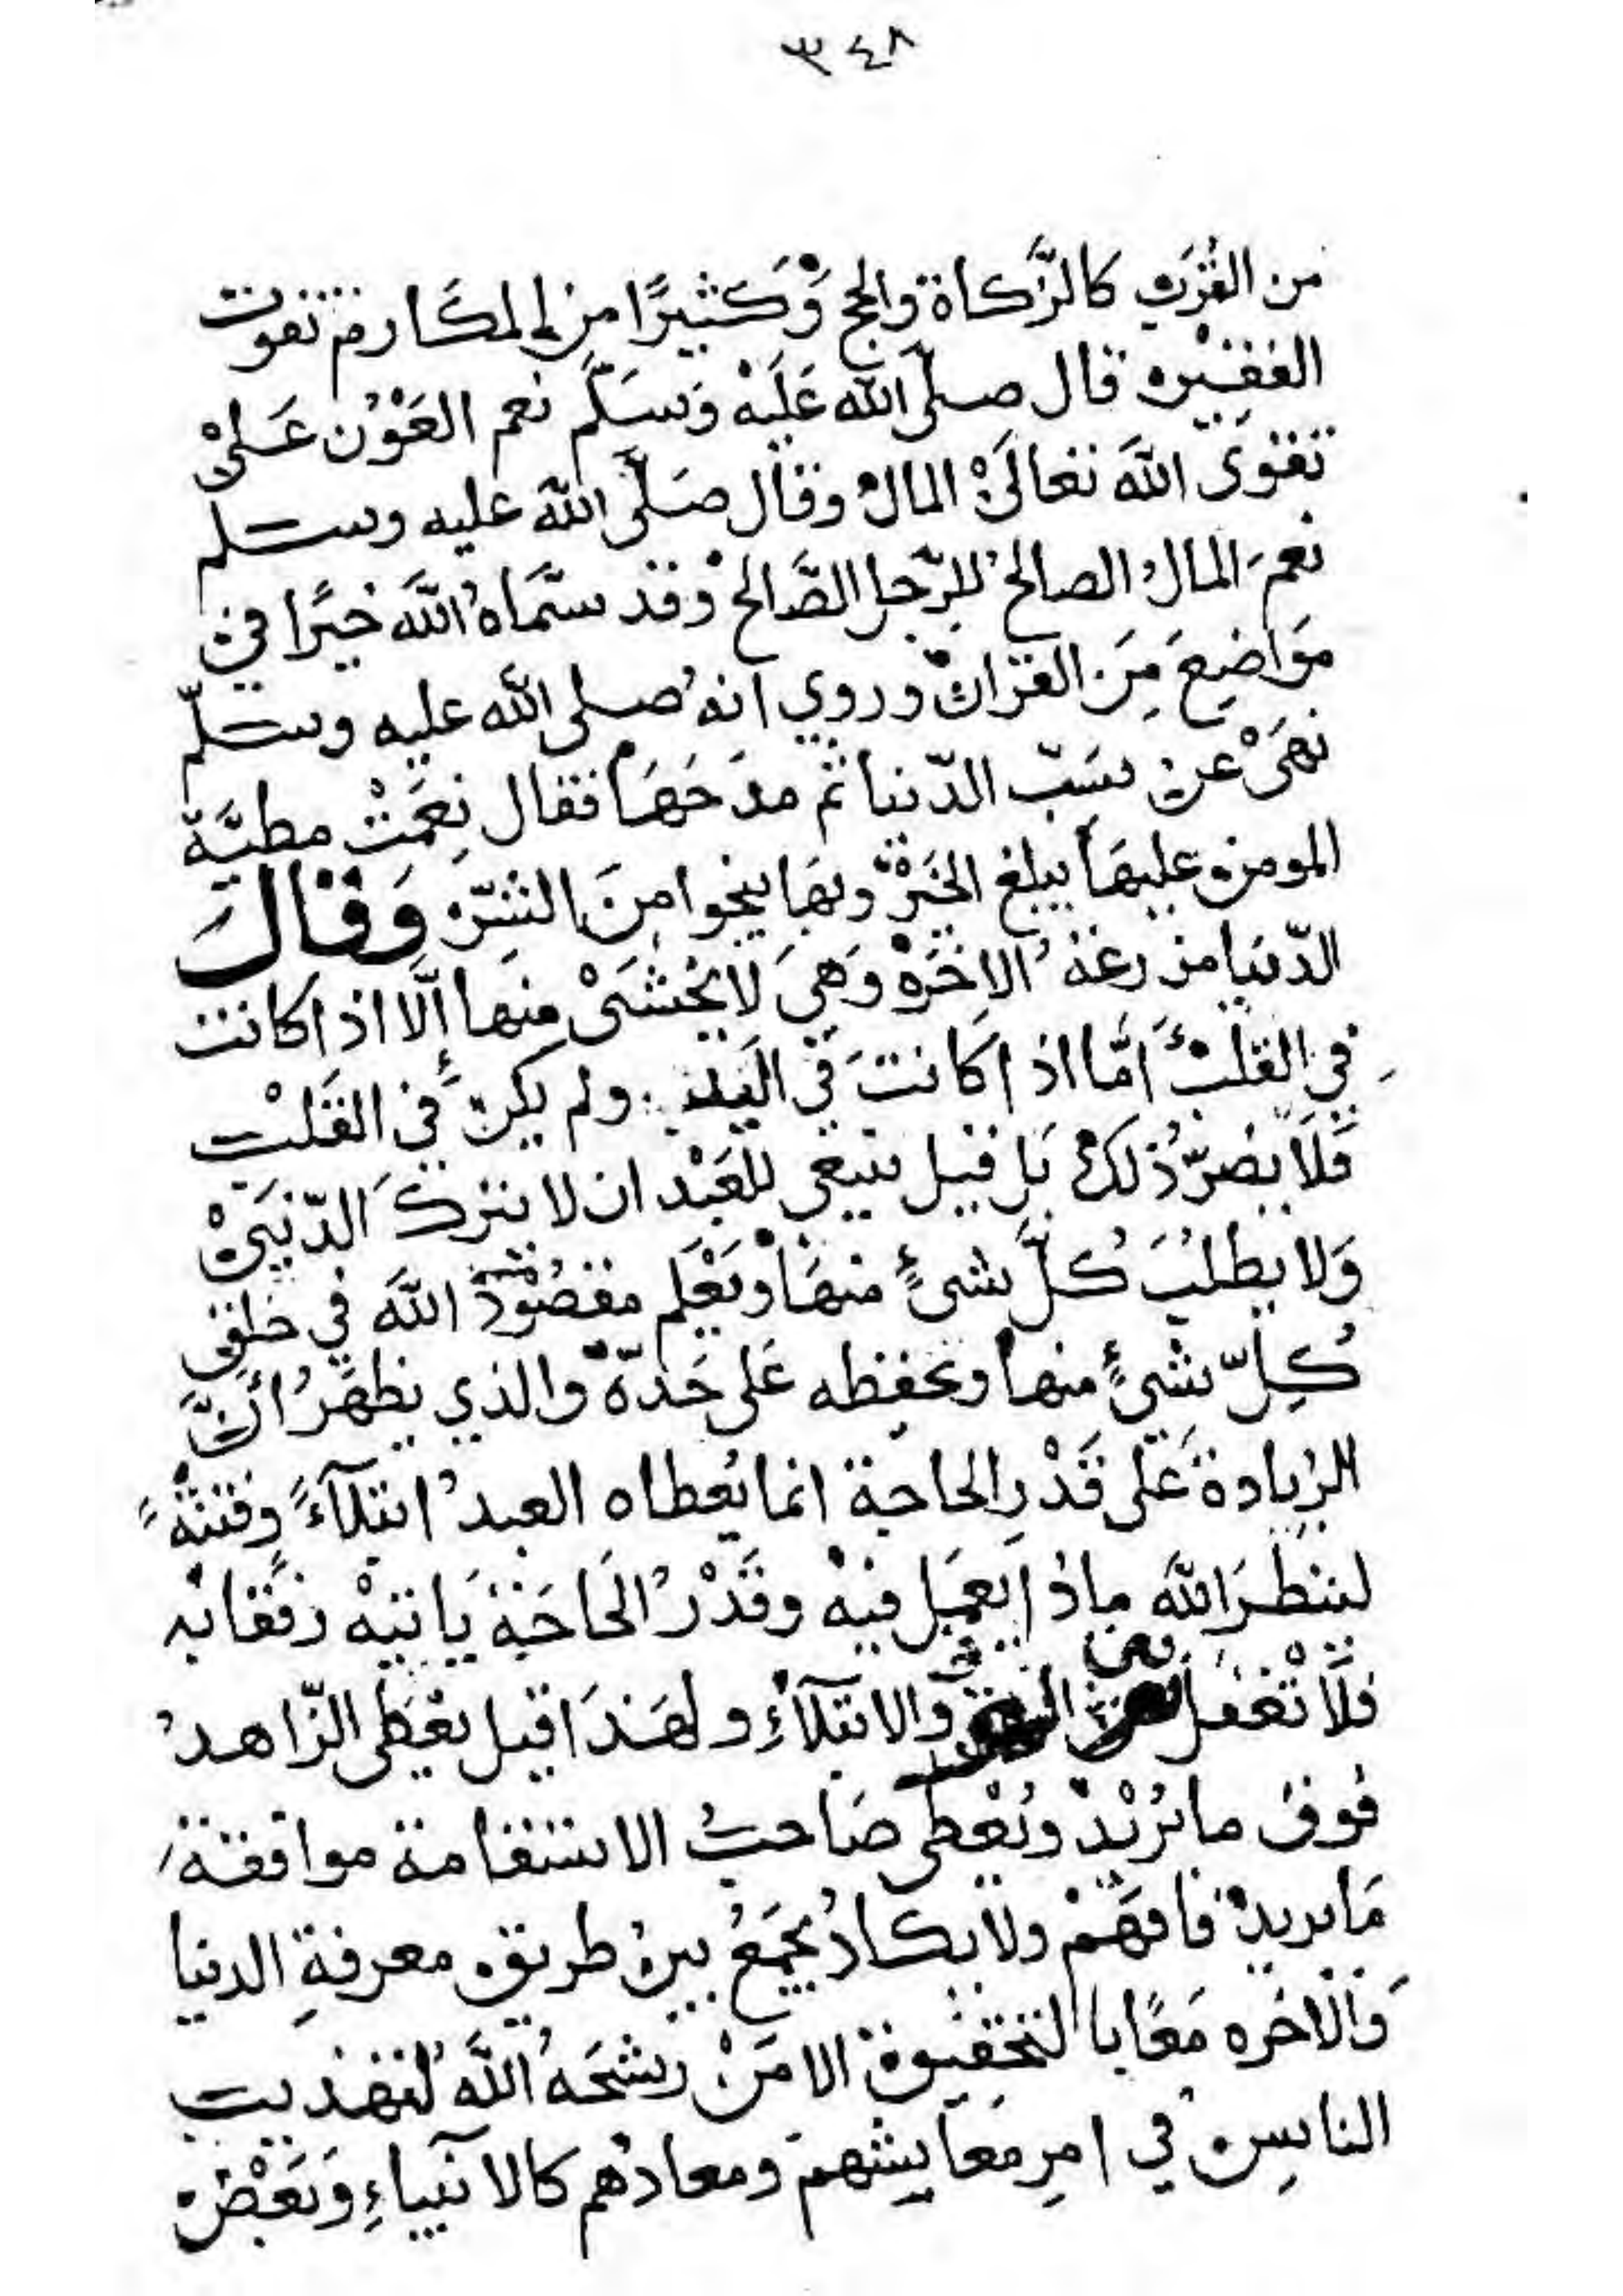 ٣٤٨
من القُرَبِ كالزَّكاة والحج وَكَثيرًا من المكَارم تفوت
الفقير قال صلى الله عَلَيْه وَسَلَّم نعم العَوْن عَلىْ
تقوَى اللهَ تعالَىْ المال وقال صَلَّى اللهَ عليه وسلم
نعمَ المالُ الصالح للرّجل الصَّالح وَقد سَمَّاهُ اللَّهَ خيرًا في
مَوَاضِعَ مِنَ القرَان وروي انهُ صلى الله عليه وسلّم
نهَىْ عن سَبّ الدّنيا ثم مدَحَهَا فقال نِعْمَتْ مطيَّة
المومن عليهَا يبلغ الخَيرْ وبهَا ينجوا منَ الشرّ وَقَال
الدّنيَا مزرعَةُ الاخَرَهْ وَهِيَ لَا يخشَىْ منها إلَّا اذا كانت
في القلبْ أمَّا اذا كانتَ في اليَد ولم يكن في القَلبْ
فَلَا يضرّ ذلك بَل قيل ينبغي للعَبْد ان لا يتركَ الدّنيَىْ
وَلا يطلبُ كُلَّ شيءٍ منهَا وَيَعْلَم مقصُوْدَ اللهَ في خلق
كُلِّ شيءٍ منها ويحفظه عَلى حَدّهْ والذي يظهَرُ أنَّ
الزيادة عَلى قَدْرِ الحاجة انما يُعطاه العبدُ ابتلَآءً وفتنَةً
لينظرَ اللهَ ماذا يعمَل فيهْ وقَدْرُ الحَاجَة يَاتيهْ رفقًا به
فلَا تغفل عن والابتلآءِ ولهَذَا قيل يعْطى الزّاهدُ
فوق ما يُرْيدْ ويُعْطى صَاحبُ الاستقامة موافقة
مَا يريدْ فافهَمْ ولا يكادُ يجمَعُ بين طريق معرفةِ الدنيا
وَالاخره مَعًا بالتحقيق الا مَنْ رشَحَهُ اللَّهَ لتهذيب
الناسِ في امرِ مَعَايشهمْ ومعادهم كالانبياءِ وَبَعْض